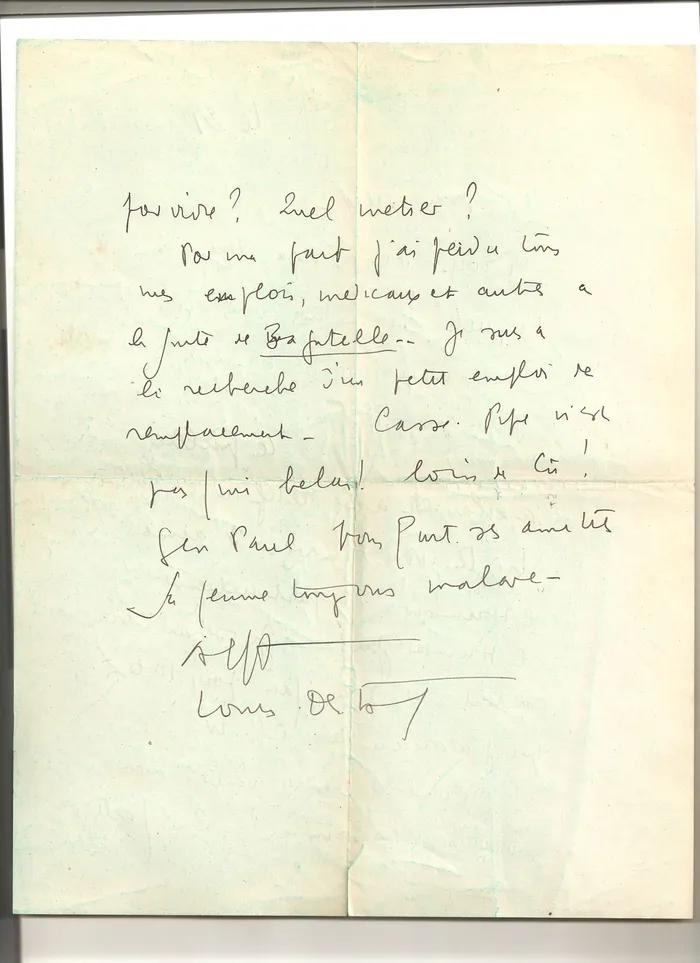 pour vivre ? Quel metier ?
Pour ma part j'ai perdu tous
mes emplois, medicaux et autres a
la suite de Bagatelle.. Je suis a
la recherche d'un petit emploi de
remplacement - Casse. Pipe n'est
pas fini helas! loin de là !
Gen Paul vous fait ses amitiés
Sa femme toujours malade -
Louis Dest